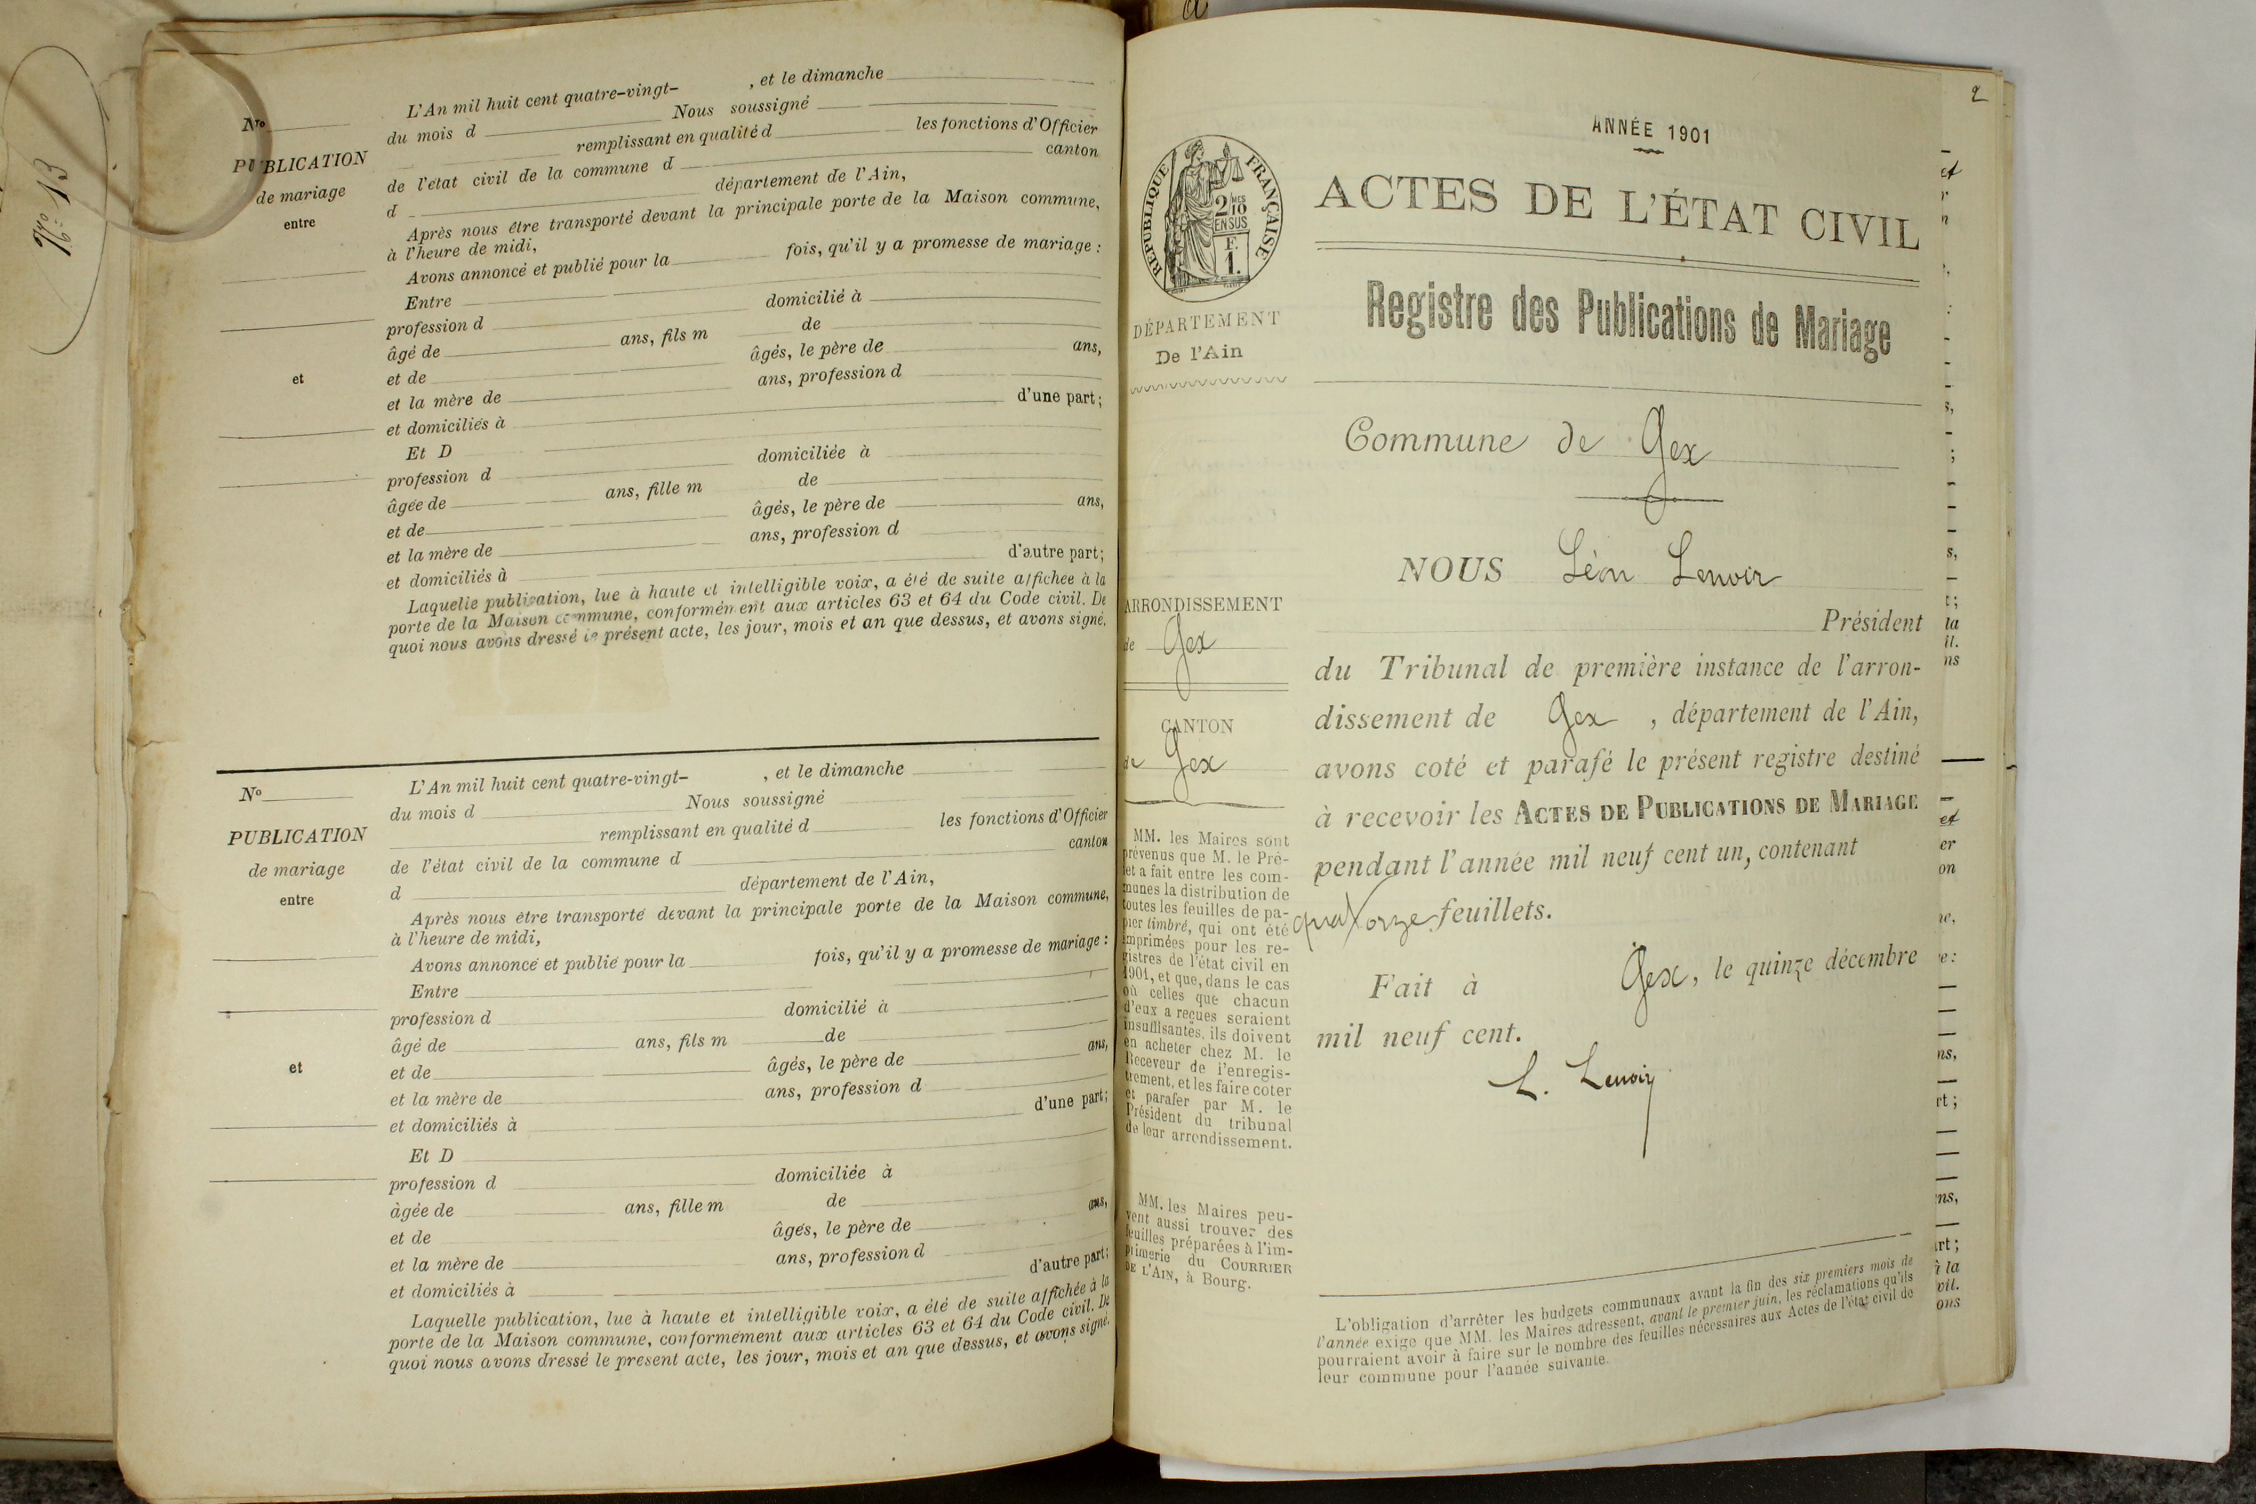 Nro
PUBLICATION
de mariage
entre
et
L'An mil huit cent quatre-vingt- , et le dimanche
du mois d Nous soussigné
remplissant en qualité d les fonctions d'Officier
de l'état civil de la commune d canton
d département de l'Ain,
Après nous être transporté devant la principale porte de la Maison commune,
à l'heure de midi,
Avons annoncé et publié pour la fois, qu'il y a promesse de mariage :
Entre
profession d domicilié à
âgé de ans, fils m de
et de âgés, le père de ans,
et la mère de ans, profession d
et domiciliés à d'une part;
Et D
profession d domiciliée à
âgée de ans, fille m de
et de âgés, le père de ans,
et la mère de ans, profession d
et domiciliés à d'autre part;
Laquelle publication, lue à haute et intelligible voix, a été de suite affichée à la
porte de la Maison commune, conformément aux articles 63 et 64 du Code civil. De
quoi nous avons dressé le présent acte, les jour, mois et an que dessus, et avons signé.
No
PUBLICATION
de mariage
entre
et
L'An mil huit cent quatre-vingt- , et le dimanche
du mois d Nous soussigné
remplissant en qualité d les fonctions d'Officier
de l'état civil de la commune d canton
d département de l'Ain,
Après nous être transporté devant la principale porte de la Maison commune,
à l'heure de midi,
Avons annoncé et publié pour la fois, qu'il y a promesse de mariage :
Entre
profession d domicilié à
âgé de ans, fils m de
et de âgés, le père de ans,
et la mère de ans, profession d
et domiciliés à d'une part;
Et D
profession d domiciliée à
âgée de ans, fille m de
et de âgés, le père de ans,
et la mère de ans, profession d
et domiciliés à d'autre part;
Laquelle publication, lue à haute et intelligible voix, a été de suite affichée à la
porte de la Maison commune, conformément aux articles 63 et 64 du Code civil. De
quoi nous avons dressé le présent acte, les jour, mois et an que dessus, et avons signé.
2
RÉPUBLIQUE FRANÇAISE
2 MES
10
EN SUS
F.
1.
DÉPARTEMENT
De l'Ain
ARRONDISSEMENT
de Gex
CANTON
de Gex
MM. les Maires sont
prévenus que M. le Pré-
fet a fait entre les com-
munes la distribution de
toutes les feuilles de pa-
pier timbré, qui ont été
imprimées pour les re-
gistres de l'état civil en
1901, et que, dans le cas
où celles que chacun
d'eux a reçues seraient
insuffisantes, ils doivent
en acheter chez M. le
Receveur de l'enregis-
trement, et les faire coter
et parafer par M. le
Président du tribunal
de leur arrondissement.
MM. les Maires peu-
vent aussi trouver des
feuilles préparées à l'im-
primerie du COURRIER
DE L'AIN, à Bourg.
ANNÉE 1901
ACTES DE L'ÉTAT CIVIL
Registre des Publications de Mariage
Commune de Gex
NOUS Léon Lenoir
Président
du Tribunal de première instance de l'arron-
dissement de Gex , département de l'Ain,
avons coté et parafé le présent registre destiné
à recevoir les ACTES DE PUBLICATIONS DE MARIAGE
pendant l'année mil neuf cent un, contenant
quatorze feuillets.
Fait à Gex, le quinze décembre
mil neuf cent.
L. Lenoir
L'obligation d'arrêter les budgets communaux avant la fin des six premiers mois de
l'année exige que MM. les Maires adressent, avant le premier juin, les réclamations qu'ils
pourraient avoir à faire sur le nombre des feuilles nécessaires aux Actes de l'état civil de
leur commune pour l'année suivante.